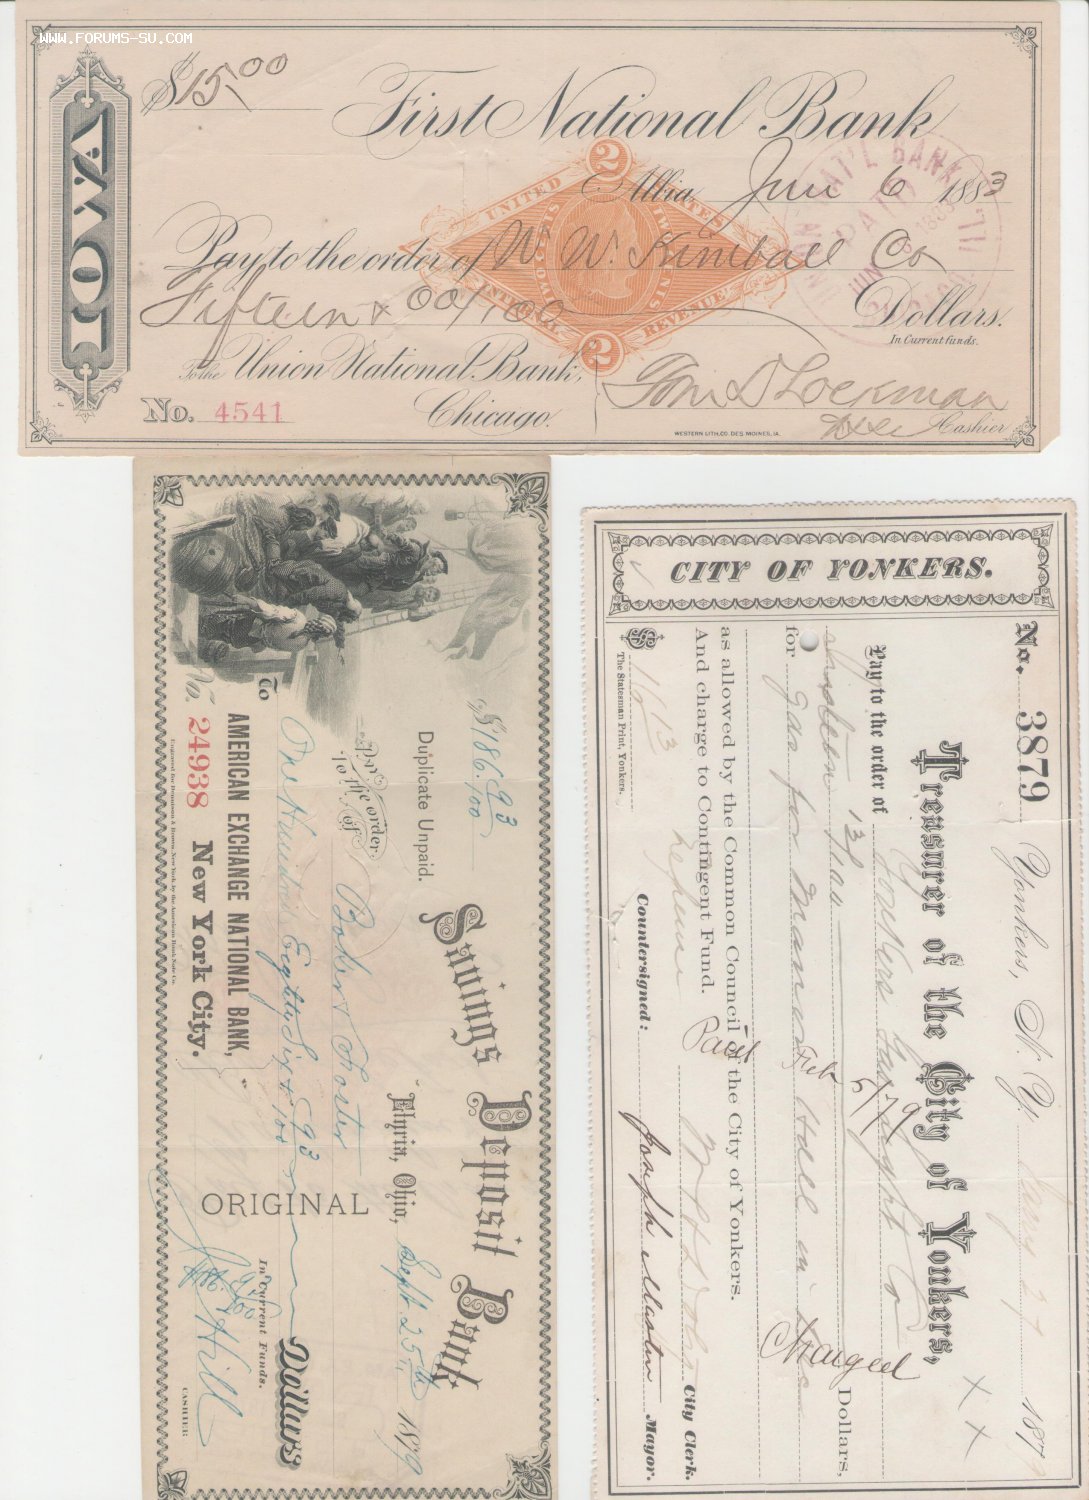 WWW.FORUMS-SU.COM
IOWA
$15.00
First National Bank
Albia Jun 6 1883
Pay to the order of W. W. Kimball Co
Fifteen & 00/100 Dollars.
In Current funds.
To the Union National Bank,
Chicago.
No. 4541
Cashier
WESTERN LITH. CO. DES MOINES, IA.
UNITED STATES
INTERNAL REVENUE
TWO CENTS
TWO CENTS
2
2
NAT'L BANK
PAID
Savings Deposit Bank
Duplicate Unpaid.
Elyria, Ohio, Sept 25th 1879
$186.93/100
Pay to the order of Robert Porter
One Hundred Eighty Six & 93/100 Dollars
ORIGINAL
In Current Funds.
To
AMERICAN EXCHANGE NATIONAL BANK,
No. 24938 New York City.
Hill
CASHIER
CITY OF YONKERS.
No. 3879 Yonkers, N. Y. 27 187
Treasurer of the City of Yonkers,
Pay to the order of Yonkers Gas Light Co
Sixteen 13/100 Dollars,
for Gas for Manor Hall in
as allowed by the Common Council of the City of Yonkers.
And charge to Contingent Fund.
Paid Feb 5/79
Charged
$ 16 13
City Clerk.
Countersigned: Joseph Masten Mayor.
The Statesman Print, Yonkers.